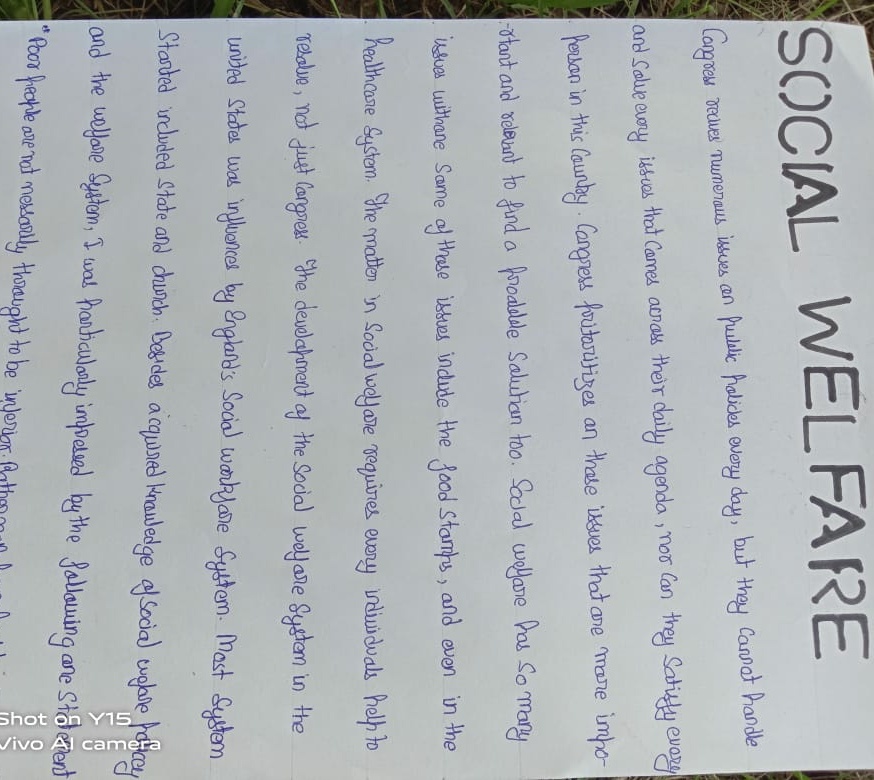 SOCIAL WELFARE
Congress reviews numerous issues on Public Policies every day, but they Cannot handle
and Solve every issues that Comes across their daily agenda, nor Can they Satisfy every
Person in this Country. Congress pritoritizes on those issues that are more impo-
-rtant and relevant to find a probable Solution too. Social welfare has So many
issues withone Some of these issues include the food Stamps, and even in the
healthcare System. The matter in Social welfare requires every individuals help to
resolve, not just Congress. The development of the Social welfare System in the
united States was influences by England's Social workfare System. Most System
Started included State and church. Besides acquired knowledge of Social welfare policy
and the welfare System, I was particularly impressed by the following one Statement
"Poor people are not messorly thorought to be inferior. Rather
Shot on Y15
Vivo AI camera